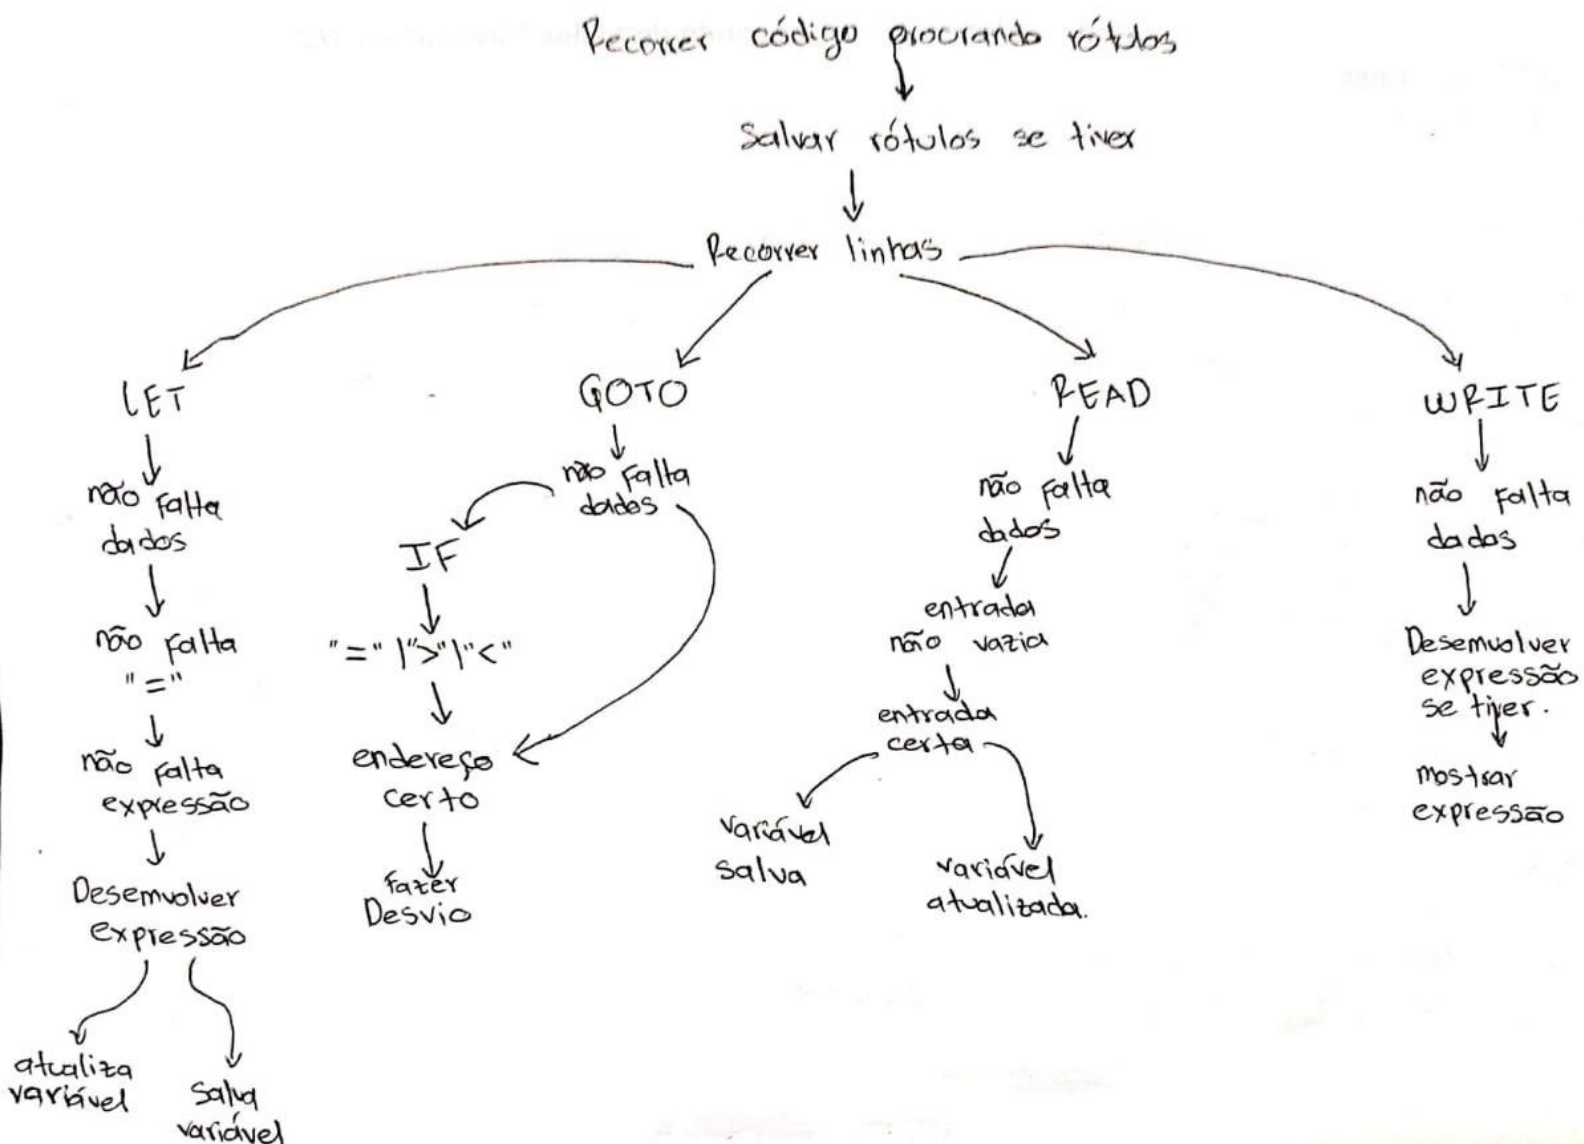 Recorrer código procurando rótulos
Salvar rótulos se tiver
Recorrer linhas
LET
não falta
dados
não falta
"="
não falta
expressão
Desemvolver
expressão
atualiza
variável
Salva
variável
GOTO
não falta
dados
IF
"=" |">"|"<"
endereço
certo
fazer
Desvio
READ
não falta
dados
entrada
não vazia
entrada
certa
variável
salva
variável
atualizada.
WRITE
não falta
dados
Desemvolver
expressão
se tiver.
mostrar
expressão